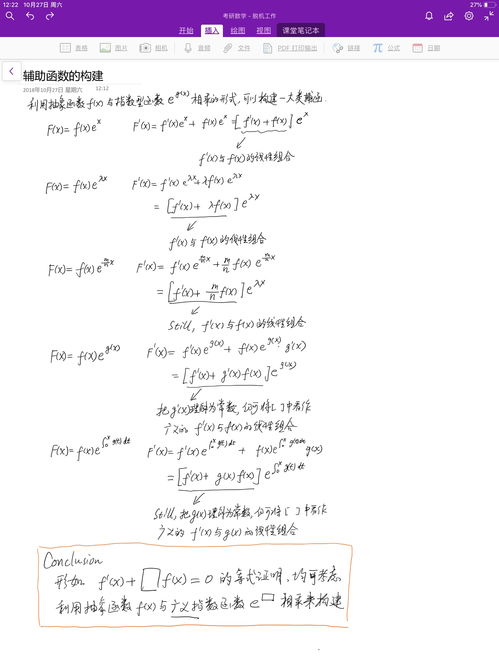 12:22 10月27日 周六
27%
考研数学 - 脱机工作
开始 插入 绘图 视图 课堂笔记本
表格 图片 相机 音频 文件 PDF 打印输出 链接 公式 日期
辅助函数的构建
2018年10月27日 星期六 12:12
利用抽象函数 f(x) 与指数型函数 e^{g(x)} 相乘的形式, 可以构建一大类辅函
F(x) = f(x)e^x F'(x) = f'(x)e^x + f(x)e^x = [f'(x) + f(x)]e^x
f'(x)与 f(x)的线性组合
F(x) = f(x)e^{λx} F'(x) = f'(x)e^{λx} + λf(x)e^{λx}
= [f'(x) + λf(x)]e^{λx}
f'(x)与 f(x)的线性组合
F(x) = f(x)e^{m/n x} F'(x) = f'(x)e^{m/n x} + m/n f(x)e^{m/n x}
= [f'(x) + m/n f(x)]e^{λx}
Still, f'(x)与 f(x)的线性组合
F(x) = f(x)e^{g(x)} F'(x) = f'(x)e^{g(x)} + f(x)e^{g(x)}·g'(x)
= [f'(x) + g'(x)f(x)]e^{g(x)}
把 g'(x)理解为常数, 仍可将[ ]中看作
广义的 f'(x)与 f(x)的线性组合
F(x) = f(x)e^{∫₀ˣ g(t)dt} F'(x) = f'(x)e^{∫₀ˣ g(t)dt} + f(x)e^{∫₀ˣ g(t)dt} g(x)
= [f'(x) + g(x)f(x)]e^{∫₀ˣ g(t)dt}
Still, 把 g(x)理解为常数, 仍可将[ ]中看作
广义的 f'(x)与 g(x)的线性组合
Conclusion
形如 f'(x) + □ f(x) = 0 的等式证明, 均可考虑
利用抽象函数 f(x)与广义指数函数 e^□ 相乘来构建